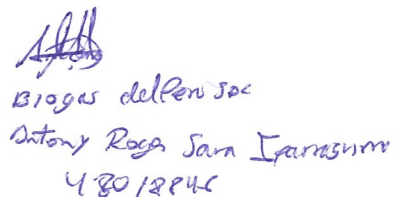 Biogas del Peru SAC
Antony Roger Sara
48018846